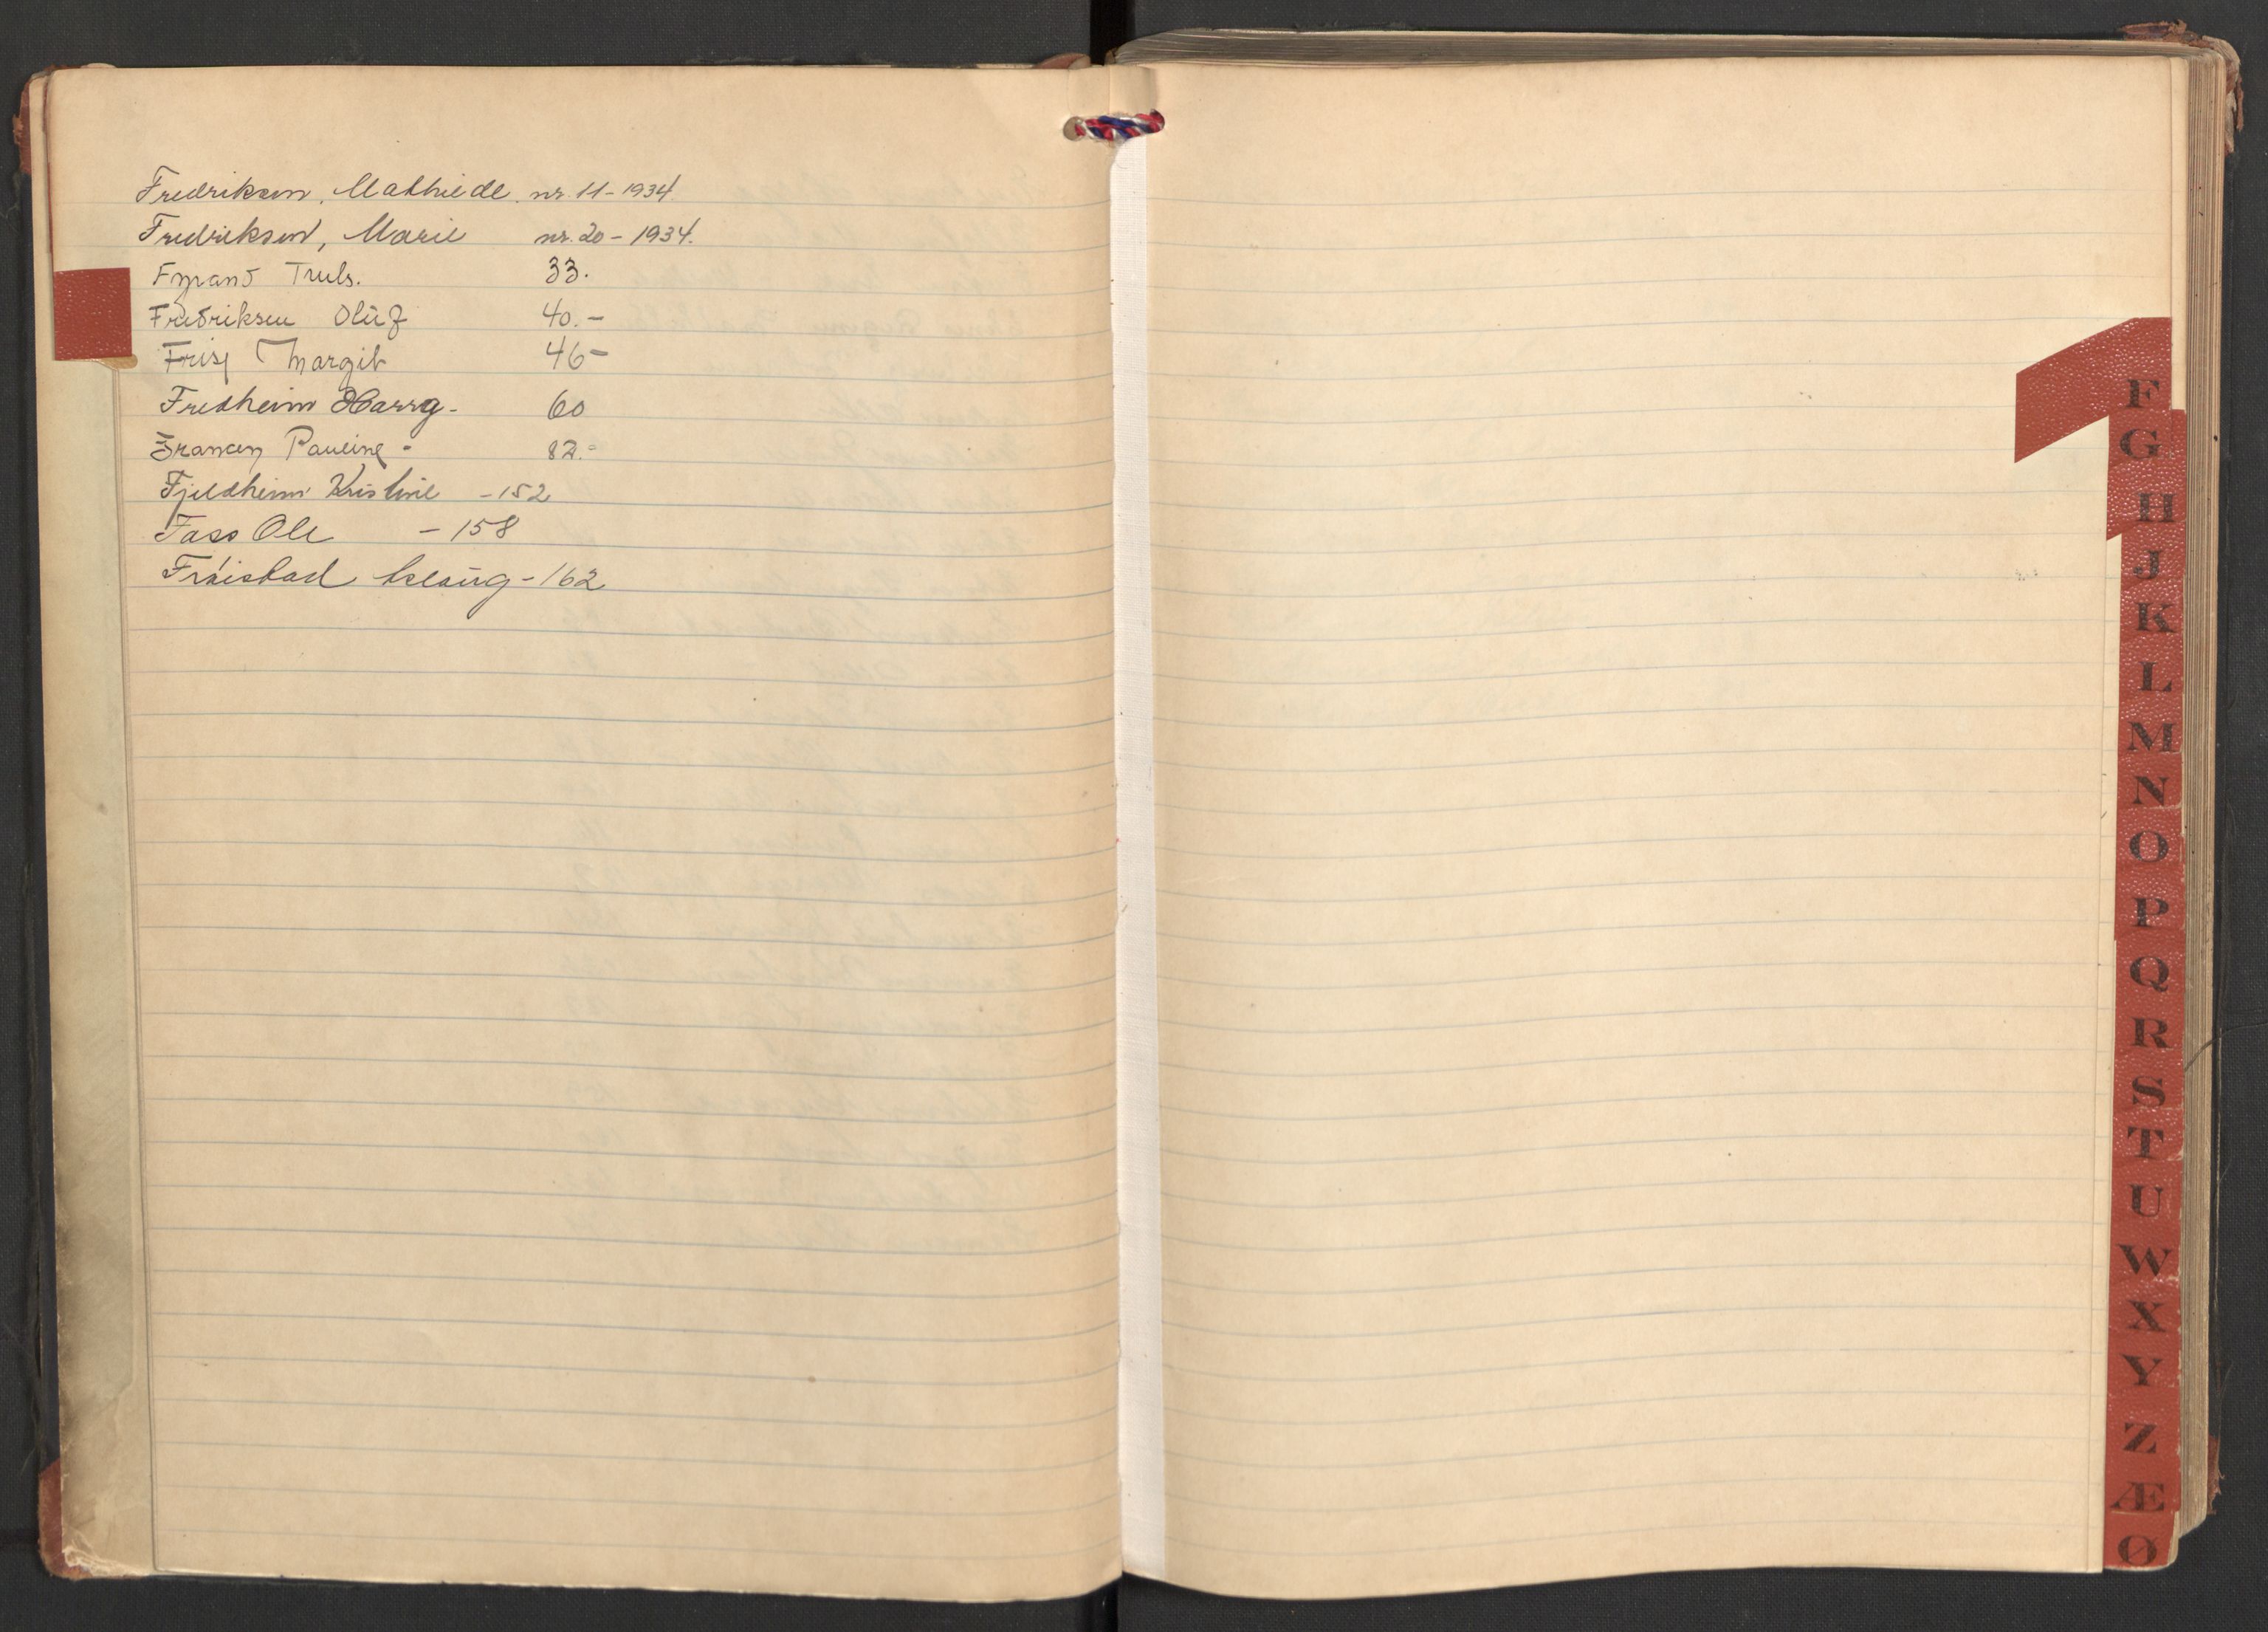 Fredriksen, Mathilde nr. 11 - 1934.
Fredriksen, Marie nr. 20 - 1934.
Fyrand Truls. 33.
Fredriksen Oluf 40.-
Margit 46-
Fredheim Harry - 60
Pauline - 82.-
Fjeldheim Kristine - 152
Fass Ole - 158
Aslaug - 162
F
G
H
J
K
L
M
N
O
P
Q
R
S
T
U
W
X
Y
Z
Æ
Ø